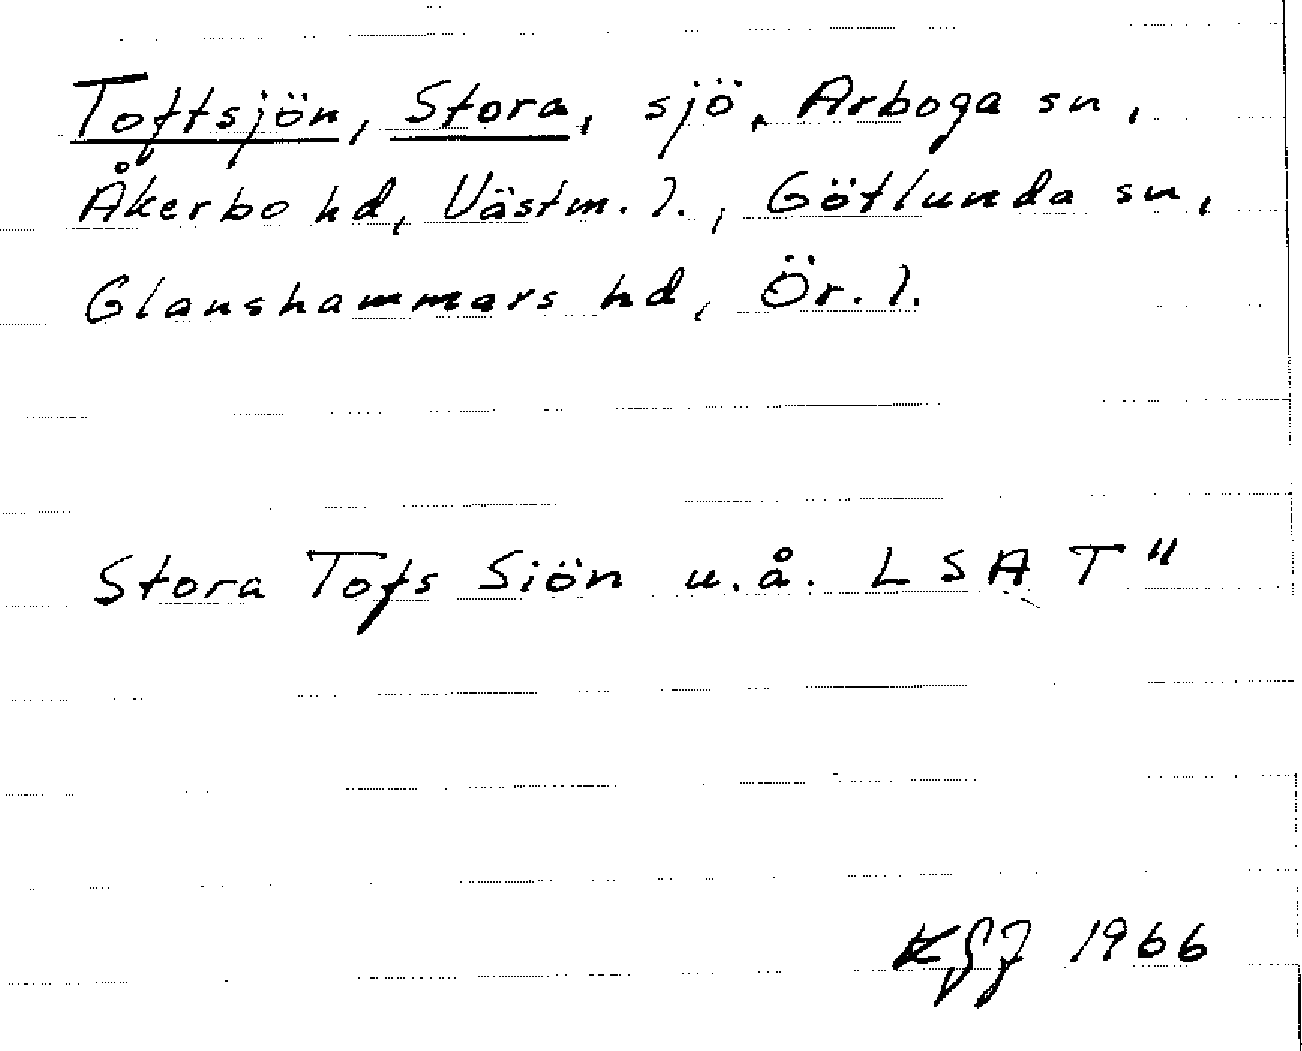 Toftsjön, Stora, sjö, Arboga sn,
Åkerbo hd, Västm. l., Götlunda sn,
Glanshammars hd, Ör. l.
Stora Tofs Siön u.å. LSA T"
KGJ 1966